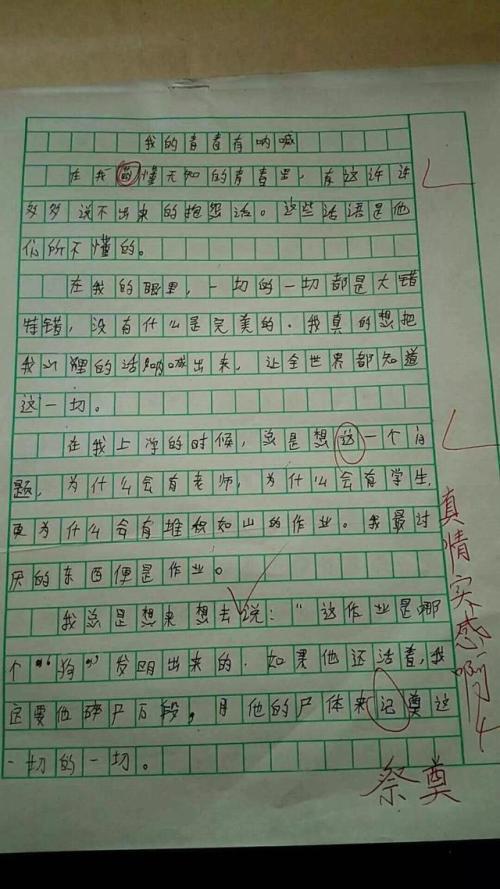 我的青春有呐喊
在我懵懂无知的青春里，有这许许
多多说不出来的抱怨话。这些话语是他
们所不懂的。
在我的眼里，一切的一切都是大错
特错，没有什么是完美的．我真的想把
我心裡的话呐喊出来，让全世界都知道
这一切。
在我上课的时候，总是想这一个问
题，为什么会有老师，为什么会有学生，
更为什么会有堆积如山的作业。我最讨
厌的东西便是作业。
我总是想来想去说：“这作业是哪
个“狗”发明出来的．如果他还活着，我
定要他碎尸万段，用他的尸体来记奠这
一切的一切。
真情实感啊！
祭奠